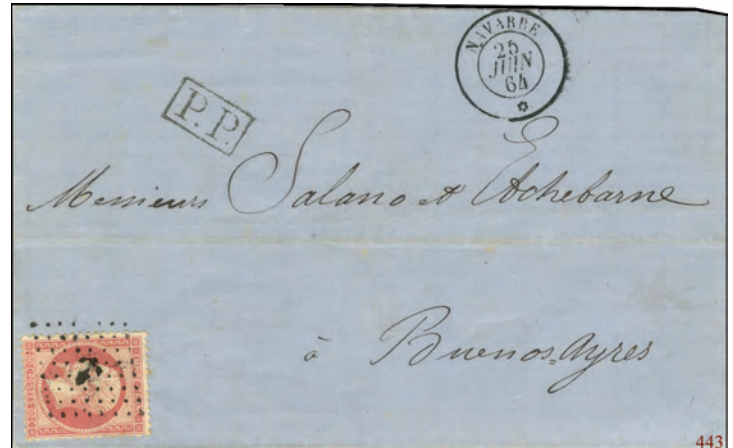 NAVARRE
25
JUIN
64
P.P.
Messieurs Salano et Etchebarne
à Buenos=Ayres
443